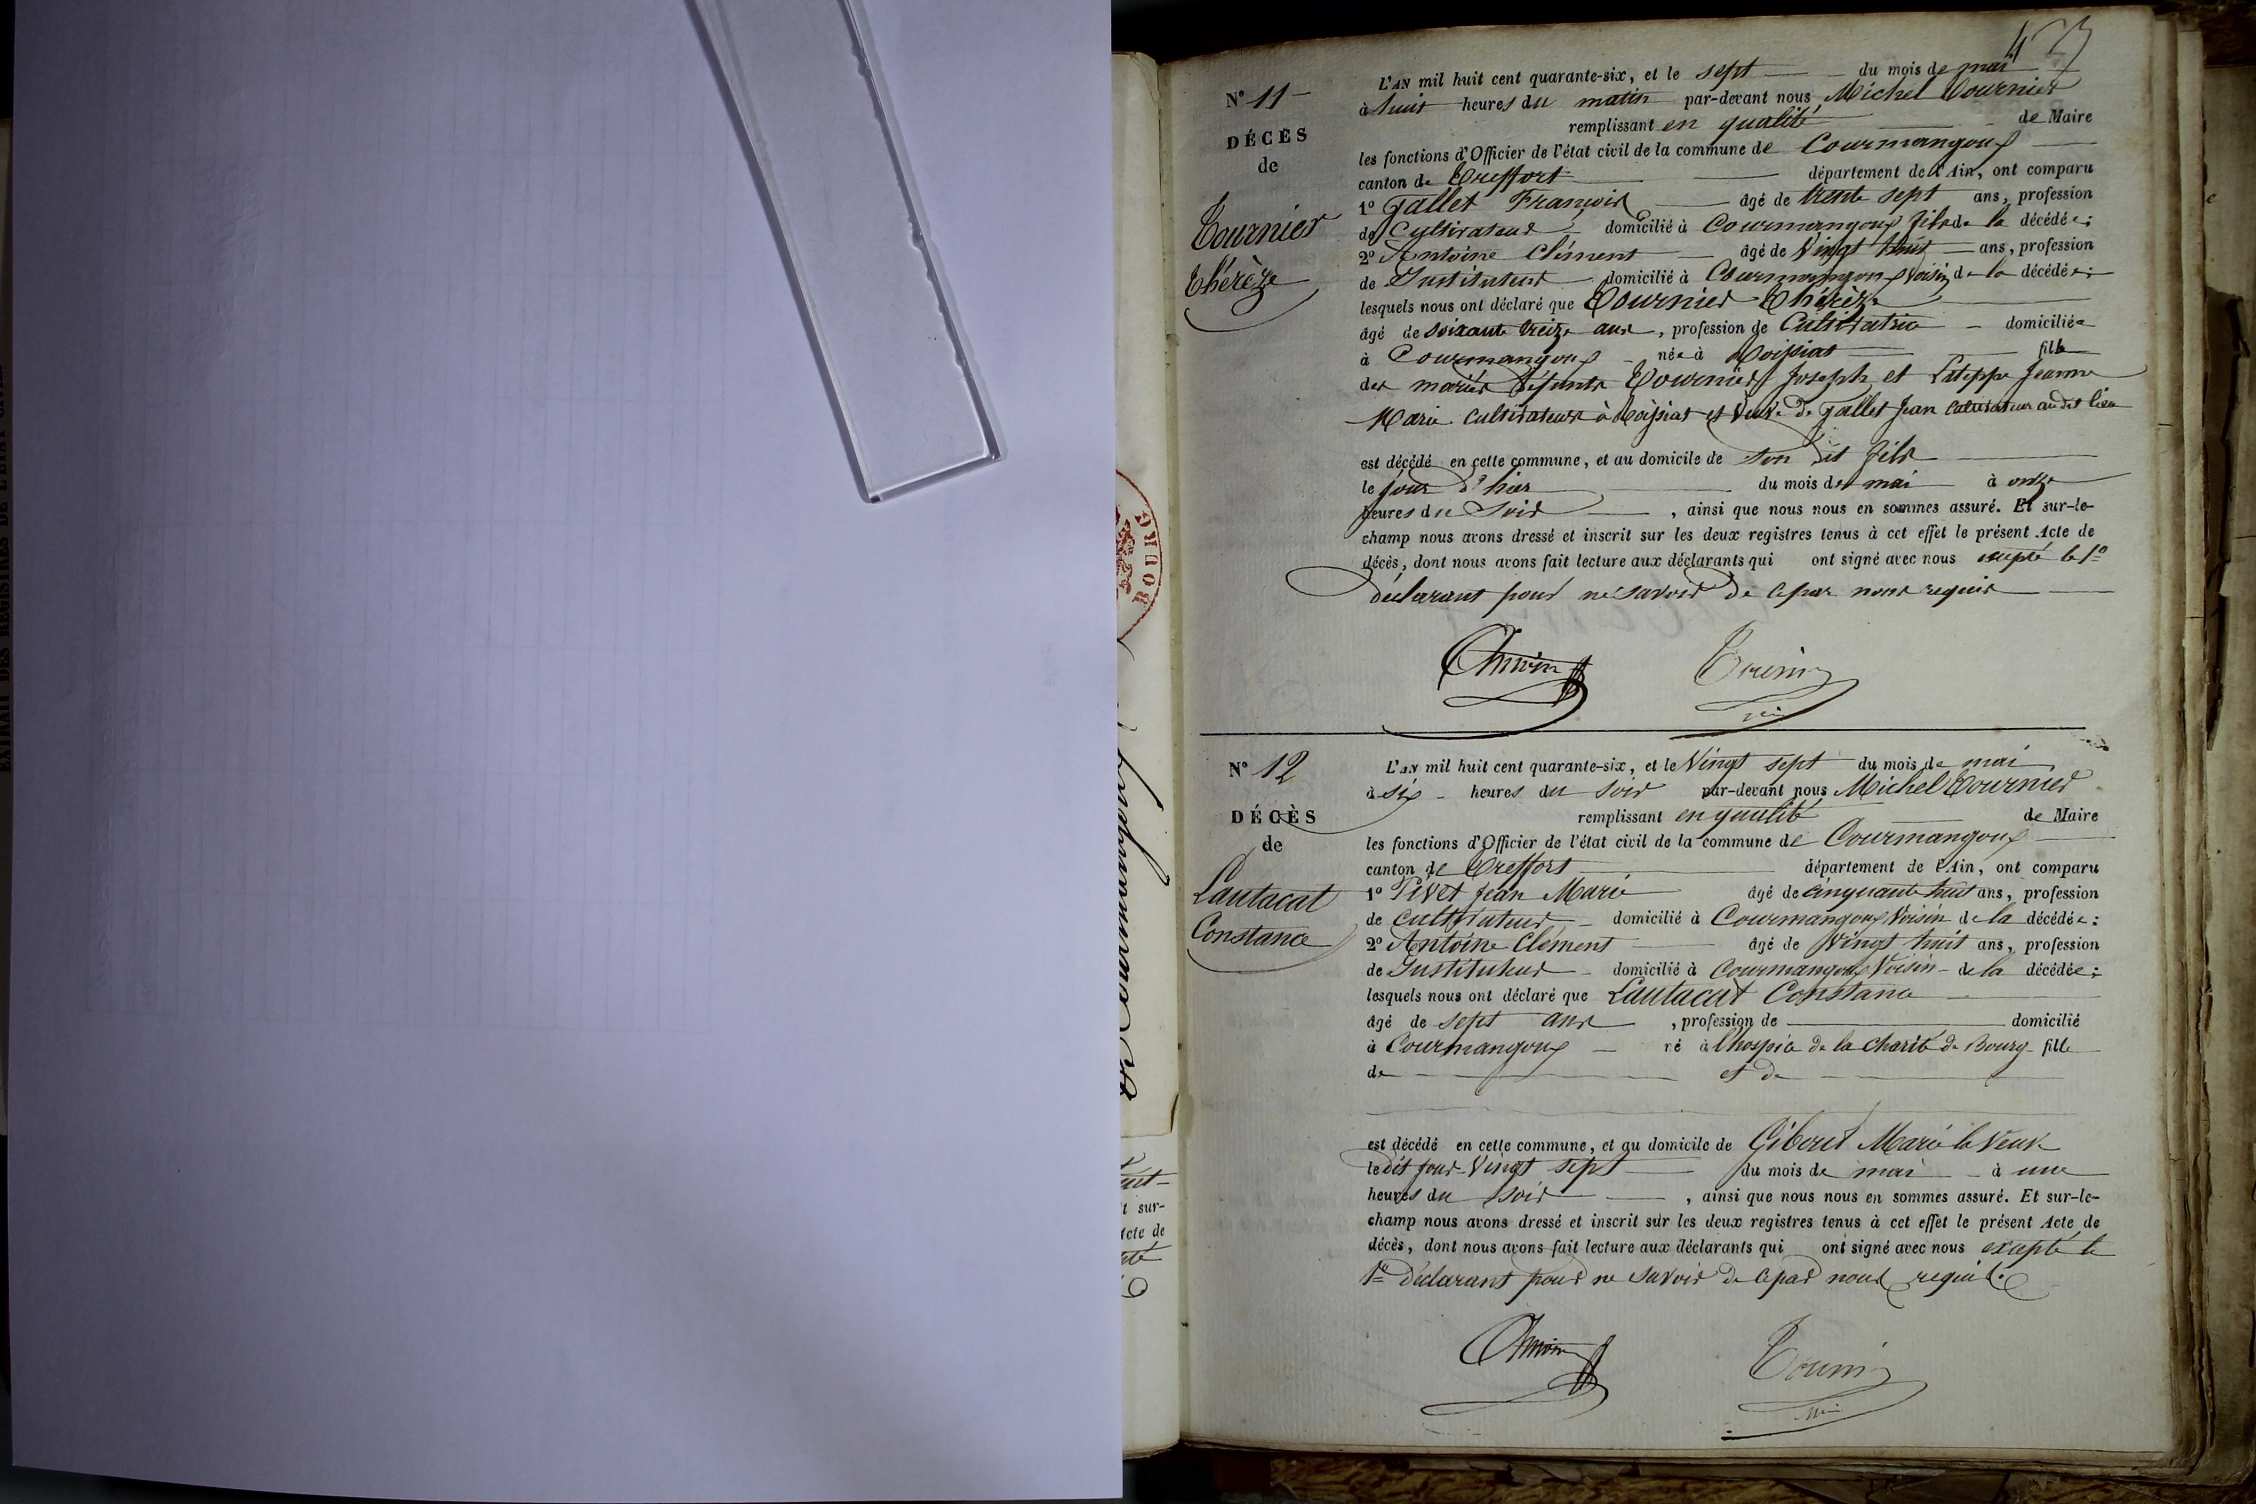 N° 11
DÉCÈS
de
Tournier
Thérèze
L'AN mil huit cent quarante-six, et le sept du mois de mai
à huit heures du matin par-devant nous Michel Tournier
remplissant en qualité de Maire
les fonctions d'Officier de l'état civil de la commune de Courmangoux
canton de Treffort département de l'Ain, ont comparu
1° Gallet François âgé de trente sept ans, profession
de Cultivateur domicilié à Courmangoux fils de la décédée;
2° Antoine Clément âgé de Vingt huit ans, profession
de Instituteur domicilié à Courmangoux Voisin de la décédée;
lesquels nous ont déclaré que Tournier Thérèze
âgé de soixante treize ans, profession de Cultivatrice domiciliée
à Courmangoux née à Moissiat fille
des mariés défunts Tournier Joseph et Jeanne
Marie Cultivateurs à Moissiat et Veuve de Gallet Jean Cultivateur au dit lieu
est décédé en cette commune, et au domicile de son dit fils
le jour d'hier du mois de mai à onze
heures du Soir, ainsi que nous nous en sommes assuré. Et sur-le-
champ nous avons dressé et inscrit sur les deux registres tenus à cet effet le présent Acte de
décès, dont nous avons fait lecture aux déclarants qui ont signé avec nous excepté le 1er
déclarant pour ne savoir de ce par nous requis
N° 12
DÉCÈS
de
Lautacat
Constance
L'AN mil huit cent quarante-six, et le Vingt sept du mois de mai
à six heures du soir par-devant nous Michel Tournier
remplissant en qualité de Maire
les fonctions d'Officier de l'état civil de la commune de Courmangoux
canton de Treffort département de l'Ain, ont comparu
1° Pivet Jean Marie âgé de cinquante huit ans, profession
de Cultivateur domicilié à Courmangoux Voisin de la décédée;
2° Antoine Clément âgé de Vingt huit ans, profession
de Instituteur domicilié à Courmangoux Voisin de la décédée;
lesquels nous ont déclaré que Lautacat Constance
âgé de sept ans, profession de domicilié
à Courmangoux né à l'hospice de la Charité de Bourg fille
de et de
est décédé en cette commune, et au domicile de Giberet Marie la Veuve
le dit jour Vingt sept du mois de mai à une
heures du Soir, ainsi que nous nous en sommes assuré. Et sur-le-
champ nous avons dressé et inscrit sur les deux registres tenus à cet effet le présent Acte de
décès, dont nous avons fait lecture aux déclarants qui ont signé avec nous excepté le
1er déclarant pour ne savoir de ce par nous requis.